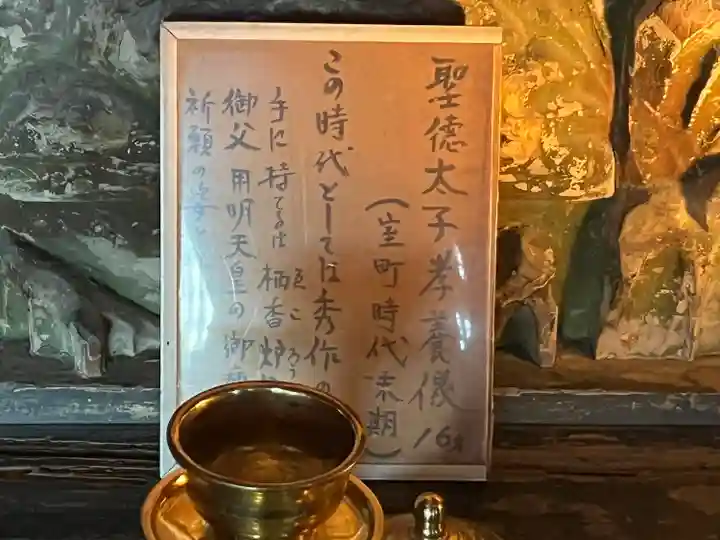 聖徳太子孝養儀 16才
(室町時代末期)
この時代としては秀作の
手に持てるは柄香炉
えころう
御父 用明天皇の御
祈願の姿